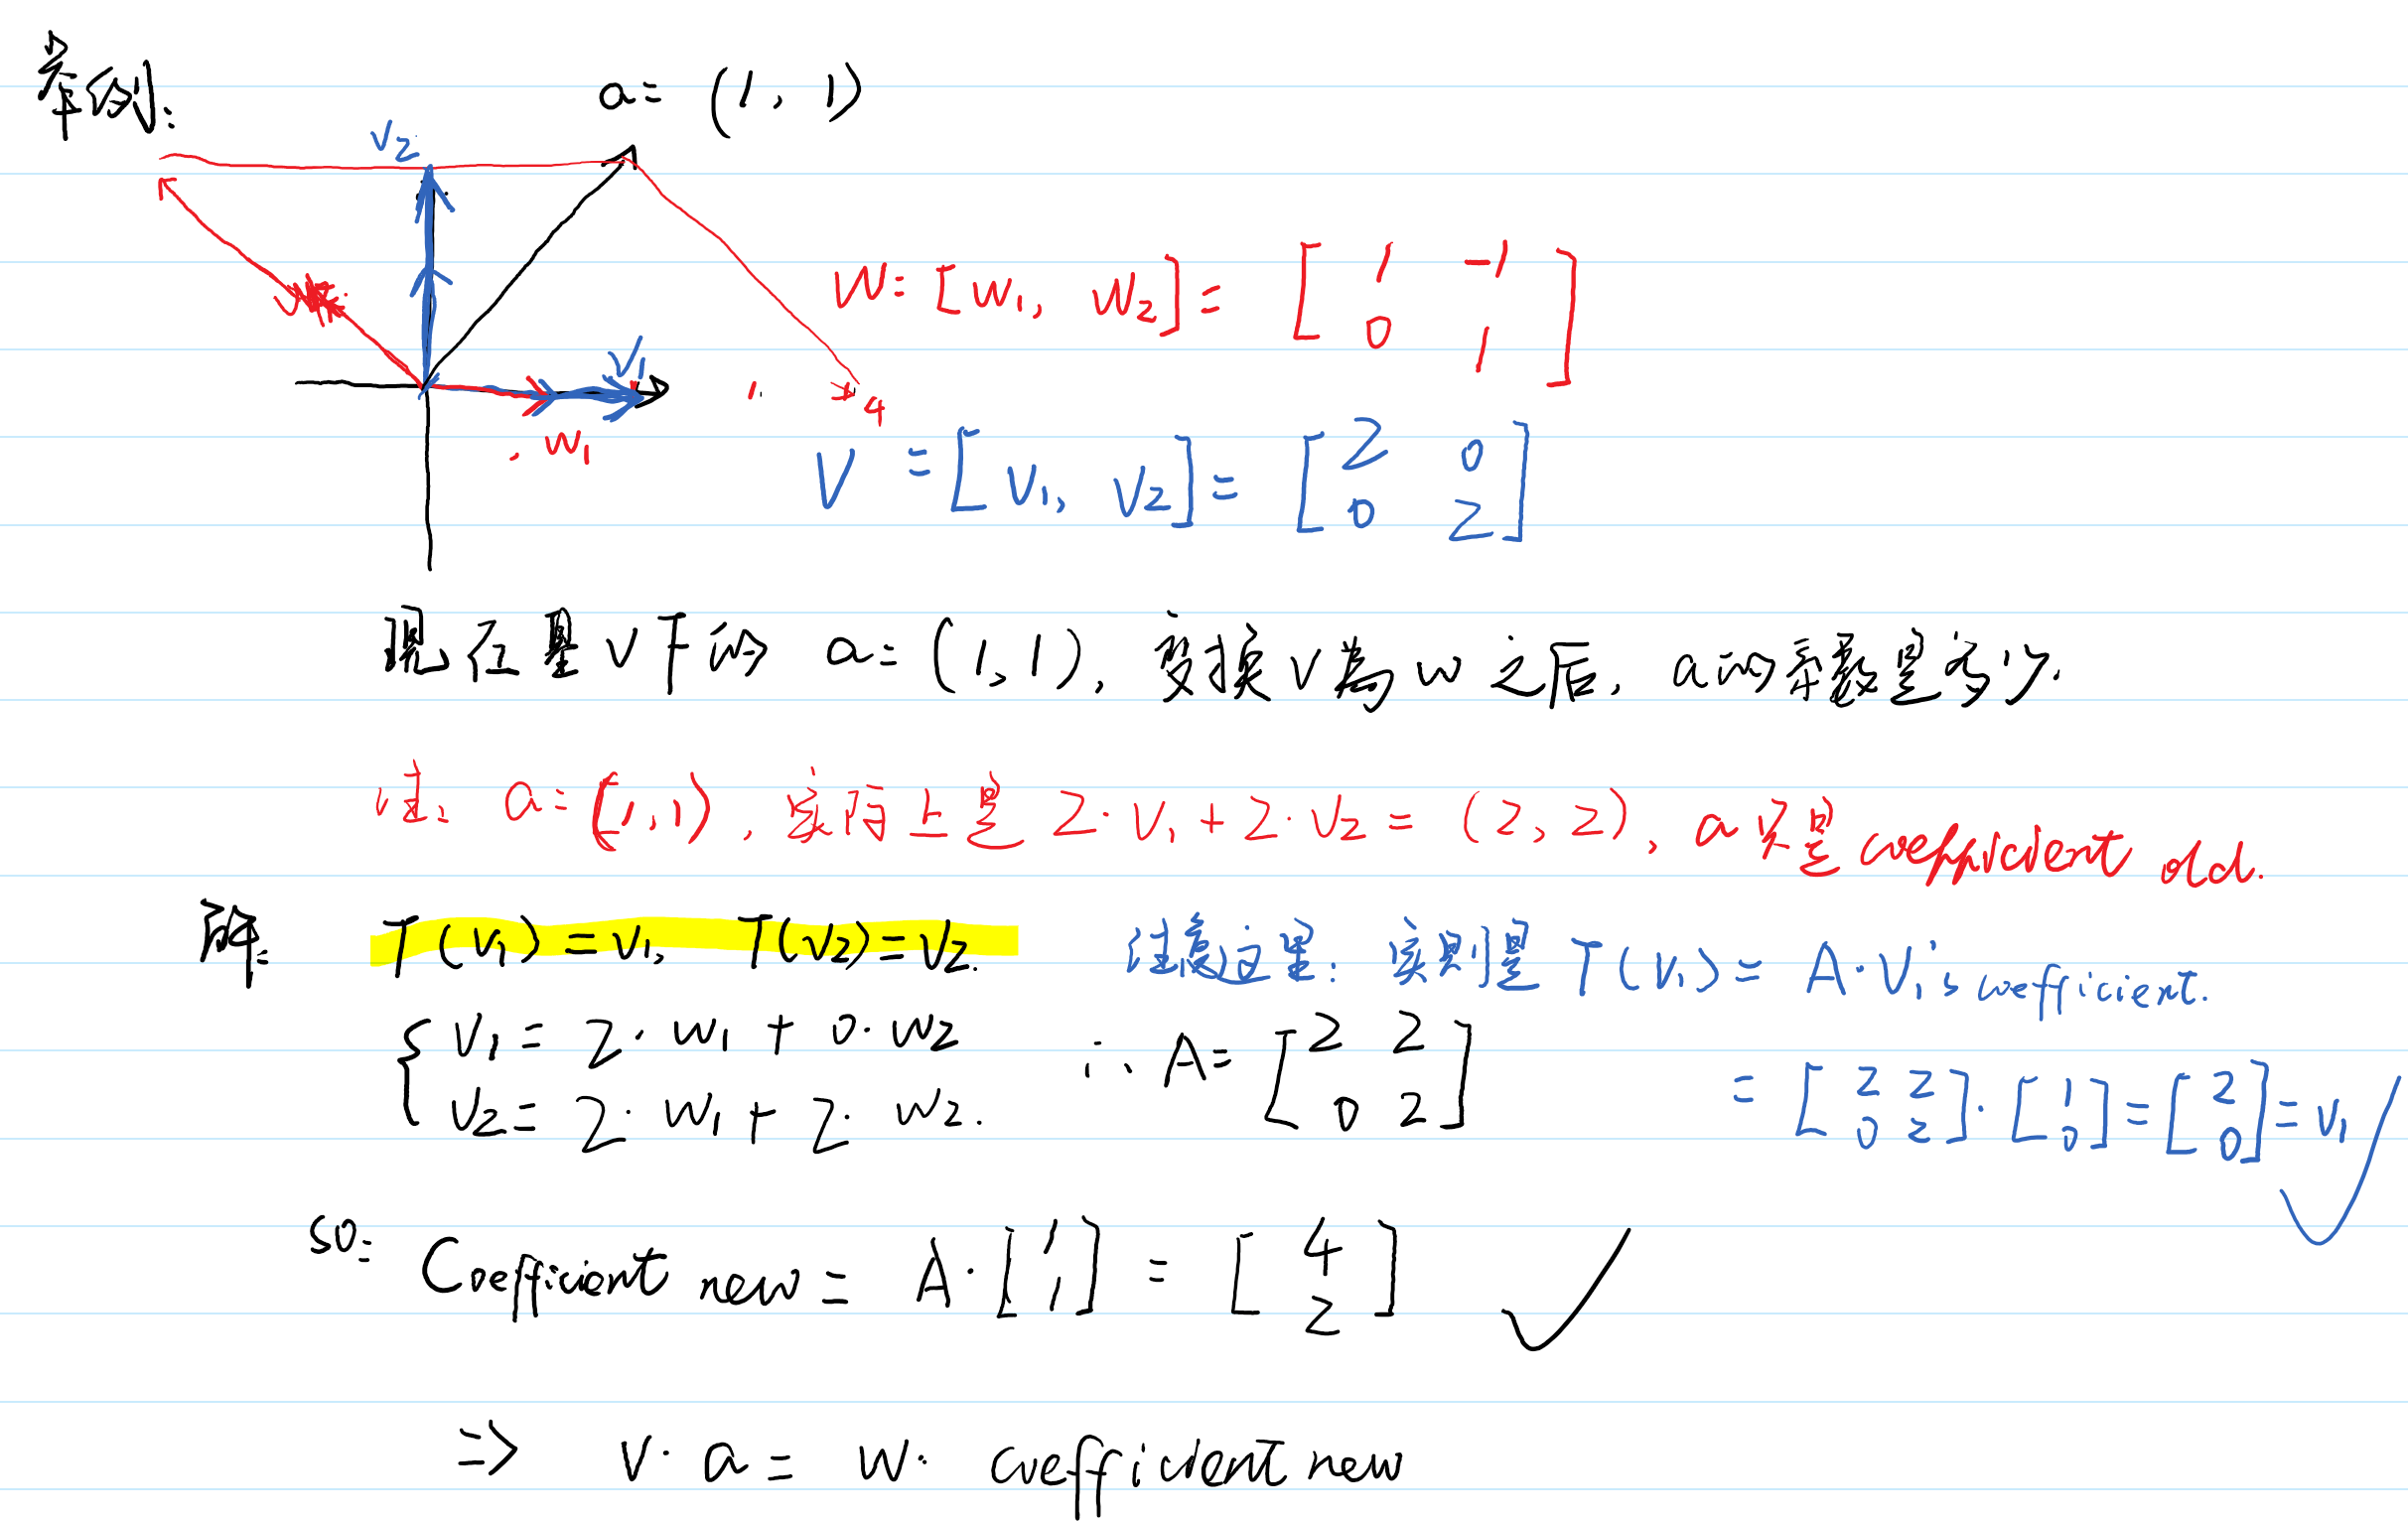 举例:
a = (1, 1)
v2
v1
w1
4
W = [w1, w2] = [1 -1; 0 1]
V = [v1, v2] = [2 0; 0 2]
现在是V下的 a = (1, 1), 变换V為W之后, a的系数是多少.
注: a = (1, 1), 实际上是 2·v1 + 2·v2 = (2, 2), a只是 coefficient old.
解: T(v1) = v1, T(v2) = v2. 注意这里: 实则是 T(v1) = A·v1's coefficient.
{ v1 = 2·w1 + 0·w2
v2 = 2·w1 + 2·w2. ∴ A = [2 2; 0 2]
= [2 2; 0 2]·[1; 0] = [2; 0] = v1
so: Coefficient new = A·[1; 1] = [4; 2]
⇒ V·a = W·coefficient new